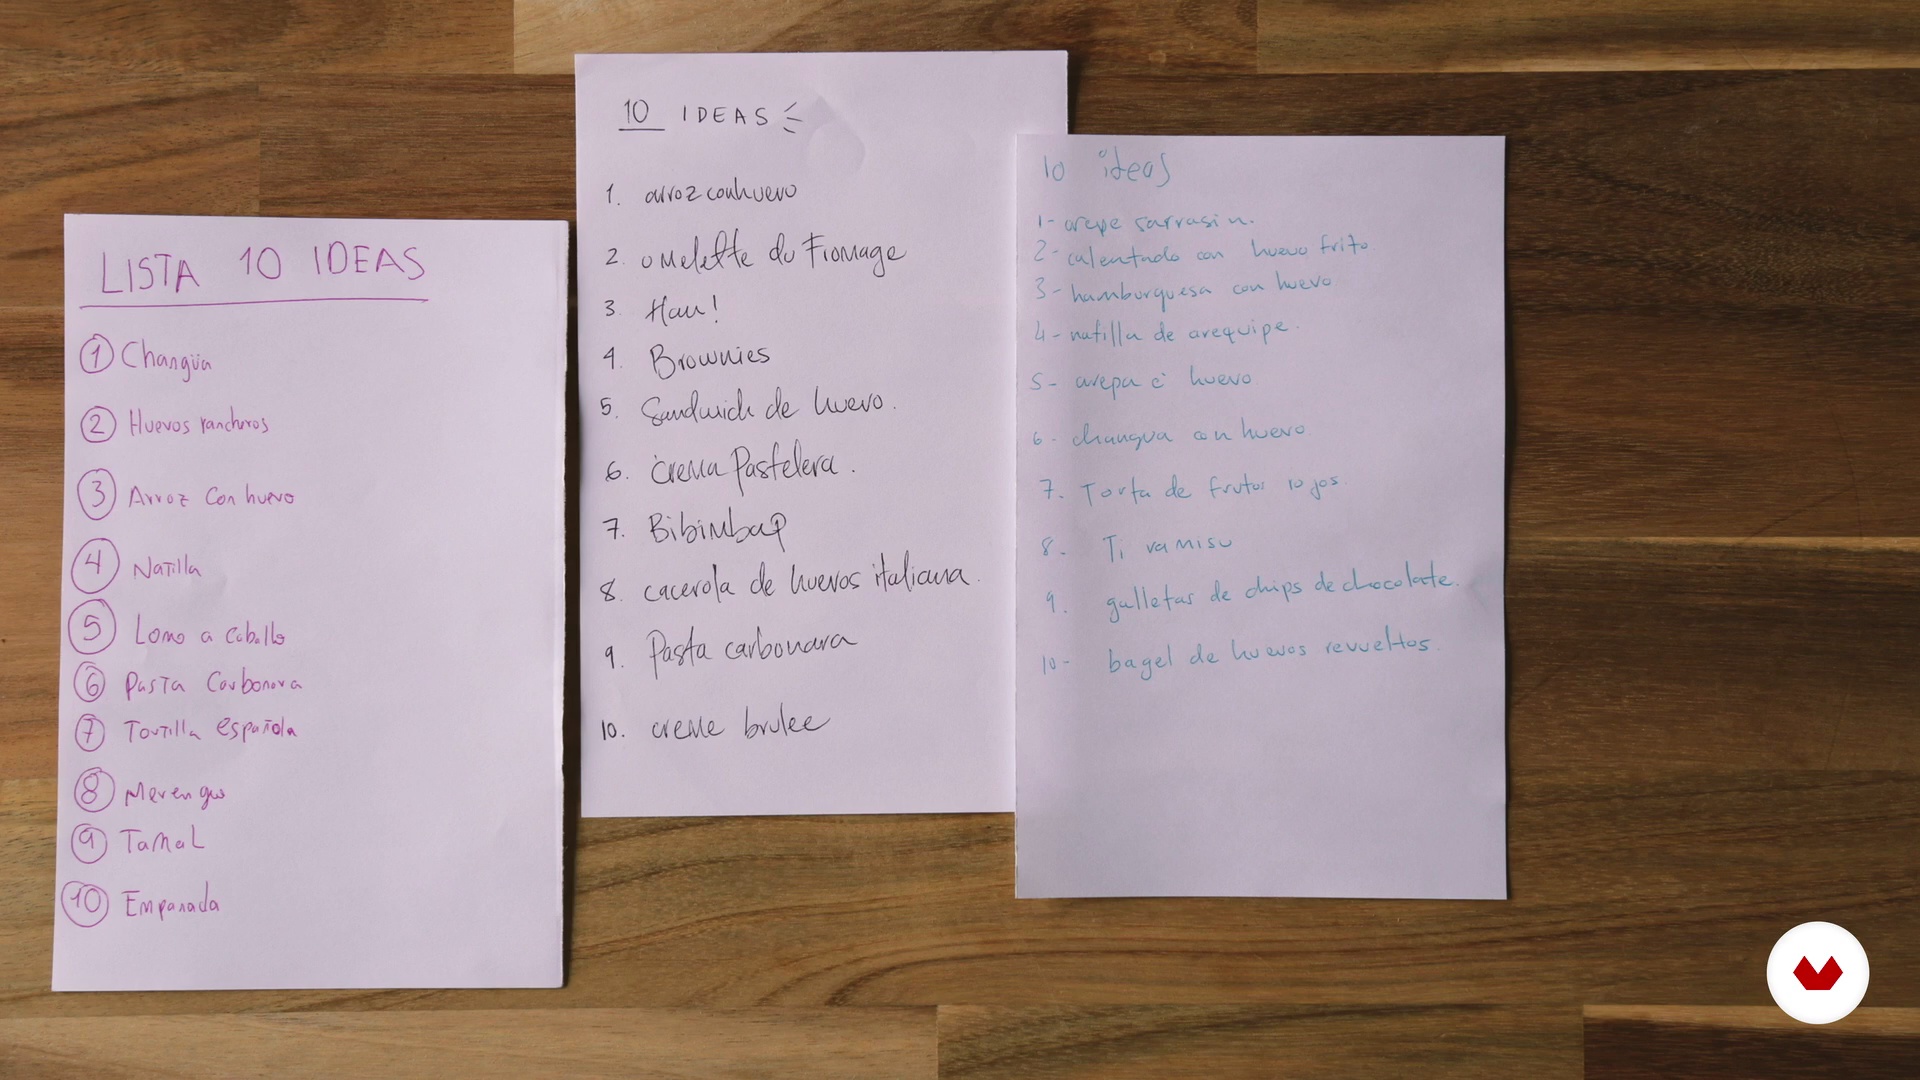 LISTA 10 IDEAS
1 Changüa
2 Huevos rancheros
3 Arroz Con huevo
4 Natilla
5 Lomo a Caballo
6 Pasta Carbonara
7 Tortilla española
8 Merengue
9 Tamal
10 Empanada
10 IDEAS
1. arroz con huevo
2. omelette du Fromage
3. Flan!
4. Brownies
5. Sandwich de huevo.
6. Crema Pastelera.
7. Bibimbap
8. cacerola de huevos italiana.
9. Pasta carbonara
10. creme brulee
10 ideas
1- crepe sarrasin.
2- calentado con huevo frito
3- hamburguesa con huevo
4- natilla de arequipe.
5- arepa e huevo
6- changua con huevo
7. Torta de frutos rojos.
8. Tiramisu
9. galletas de chips de chocolate.
10- bagel de huevos revueltos.